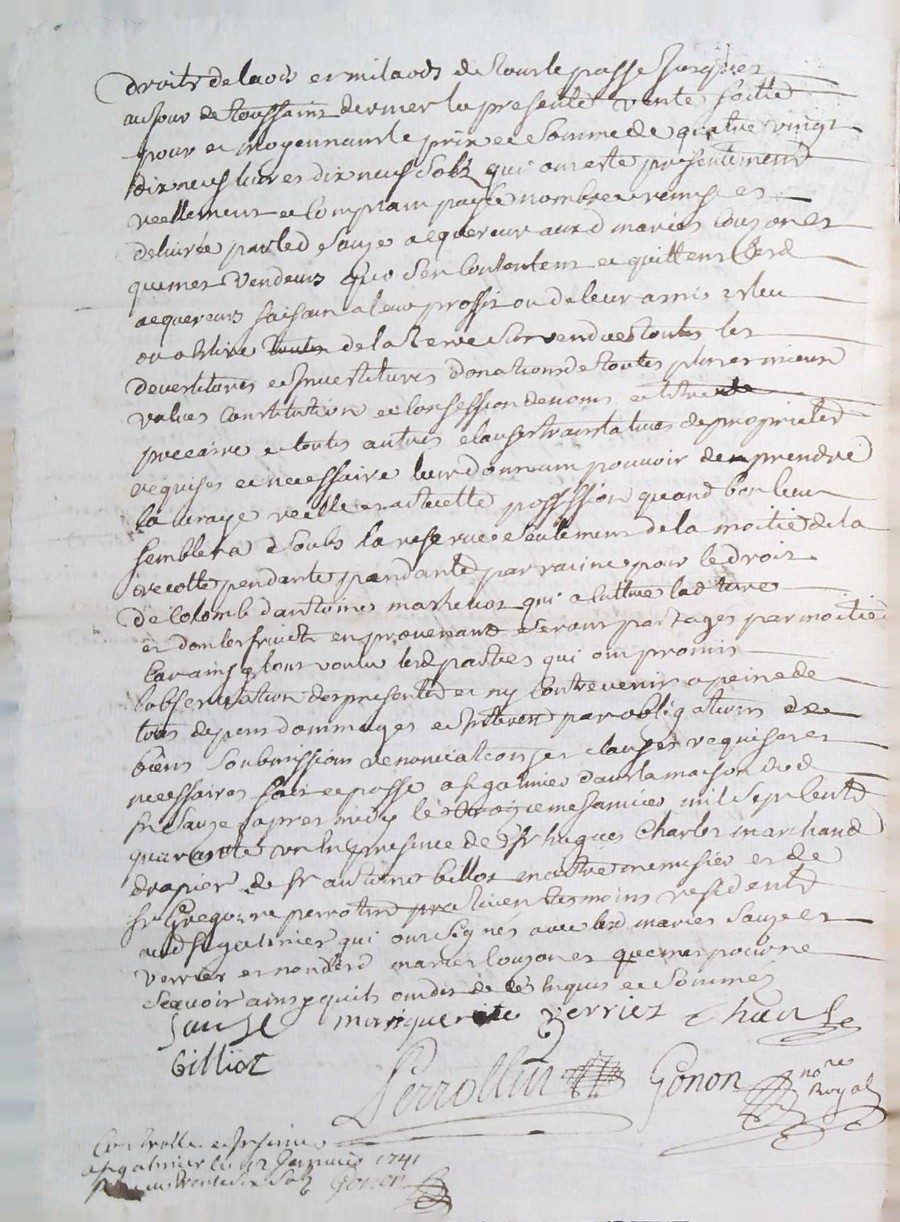 droits de laods et milaods de tout le passé jusques
au jour de toussaint dernier la presente vente faitte
pour et moyennant le prix et somme de quatre vingt
dix neuf livres dix neuf solz qui ont esté presentement
reellement et comptant payé nombré remis et
delivré par led sauze acquereur auxd mariés couzon et
quemet vendeurs qui s'en contentent et quittent lesd
acquereurs faisant a leur proffit ou de leur amis esleu
ou a elire de la vendue toutes les
devestitures et investitures donations de toutes plus et mieux
values constitution et confession de noms et tiltre
precaire et toutes autres clauses translatives de proprieted
requises et necessaire leur donnant pouvoir de prendre
la vraye reelle et actuelle possession quand bon leur
semblera soubs la reserve seulement de la moitié de la
recolte pendante pendante par racine pour le droit
de colomb d'antoine qui a cultivé lad terre
et dont les fruict en provenant seront partagés par moitié
car ainsy l'ont voulu lesd parties qui ont promis
l'observation des presentes et ny contrevenir a peine de
tous depens dommages et interest par obligations de
biens soubmissions renonciations et clauses requises et
necessaires fait et passé a st galmier dans la maison dud
sr sauze apres midy le troizieme janvier mil sept cents
quarante un en presence de sr hugues Charles marchand
drapier de sr antoine billot maitre menuisier et de
sr Gregoire perrotin praticien tesmoins residents
aud st galmier qui ont signés avec lesd mariés sauze et
verrier et non lesd mariés couzon et quemet pour ne
scavoir ainsy quils ont dit de ce enquis et sommés
Sauze marguerite verriez Charle
Gilliot
Perrottin Gonon nore Royal
Controllé et insinué
a st galmier le 12 Janvier 1741
trente six solz Gonon